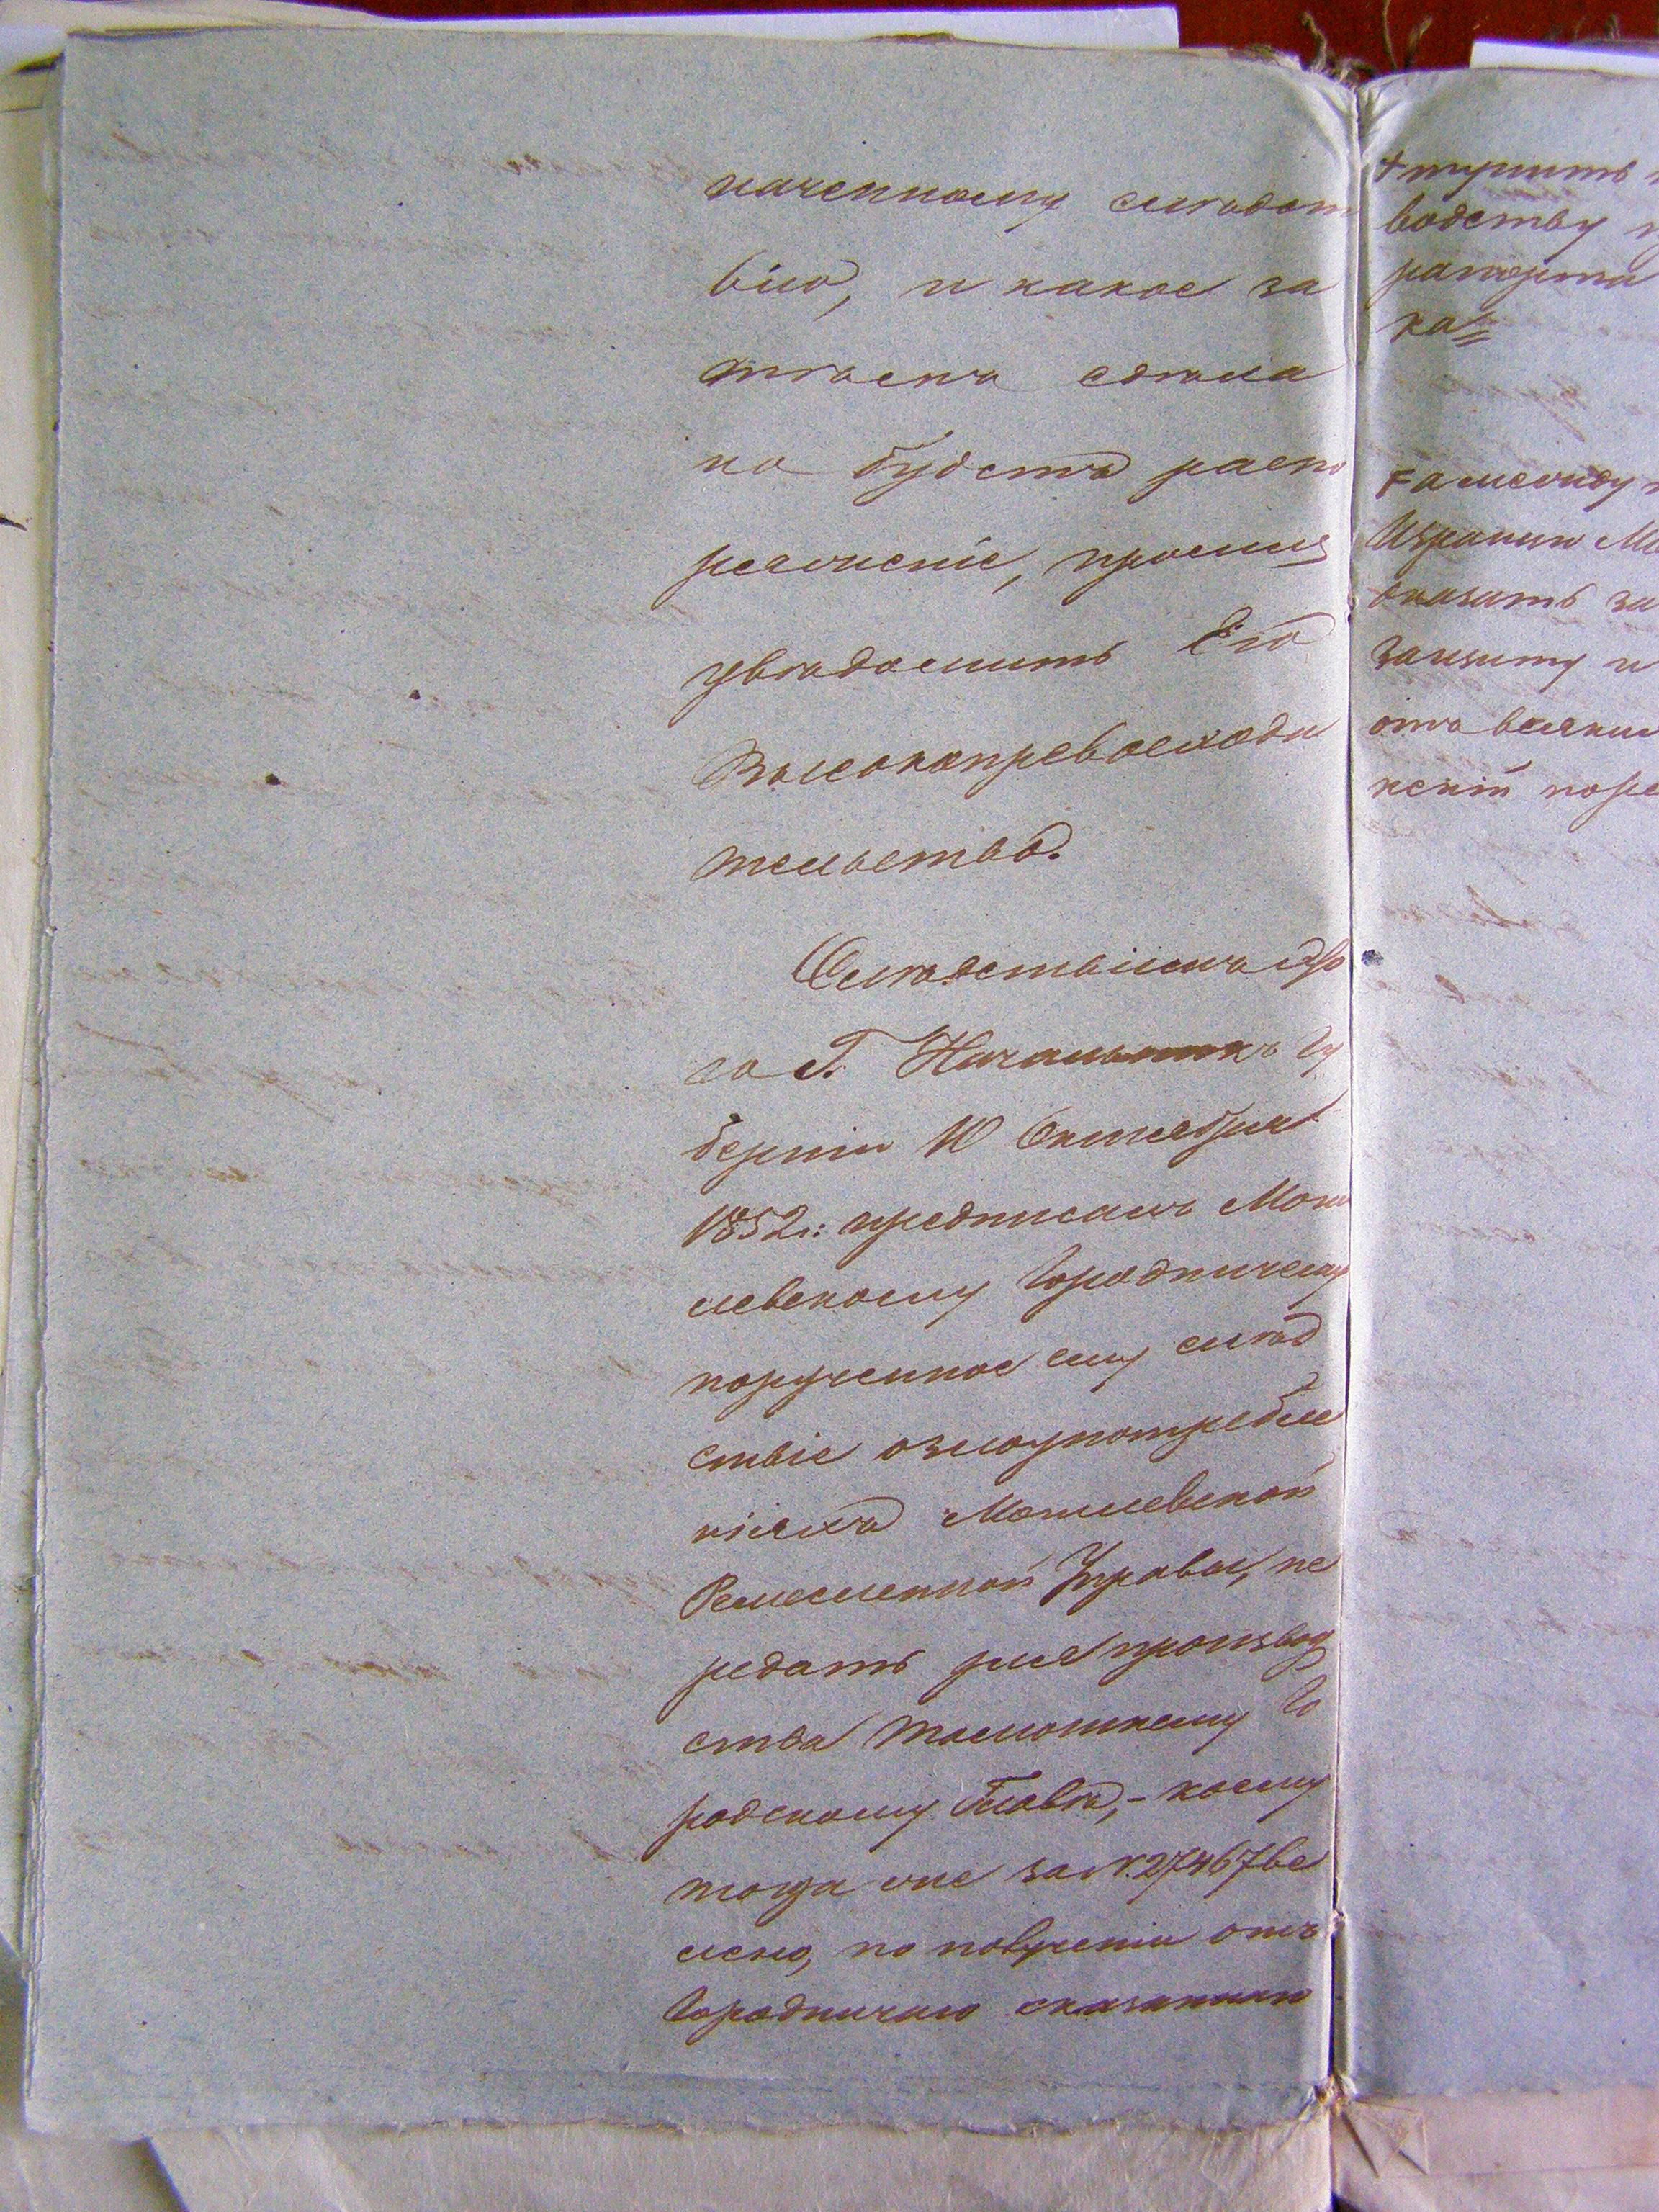 наченному следст
вію, и какое за
тѣмъ сдѣла
но будетъ распо
ряженіе, прошу
увѣдомить Его
Высокопревосходи
тельство.
Слѣдствіемъ
са Г. Начальникъ Гу
берніи 10 Октября
1852 г: предписалъ Моги
левскому Городничему
порученное ему слѣд
ствіе о злоупотребле
ніяхъ Могилевской
Ремесленной Управы, пе
редать для производ
ства тамошнему Го
родскому Главѣ, – коему
тогда же за N. 27467 ве
лено, по полученіи отъ
Городничаго сказанного
+ тупить
водству
рапорта
ка=
F а между
Израилю
оказать за
защиту и
отъ всяких
нскій поре